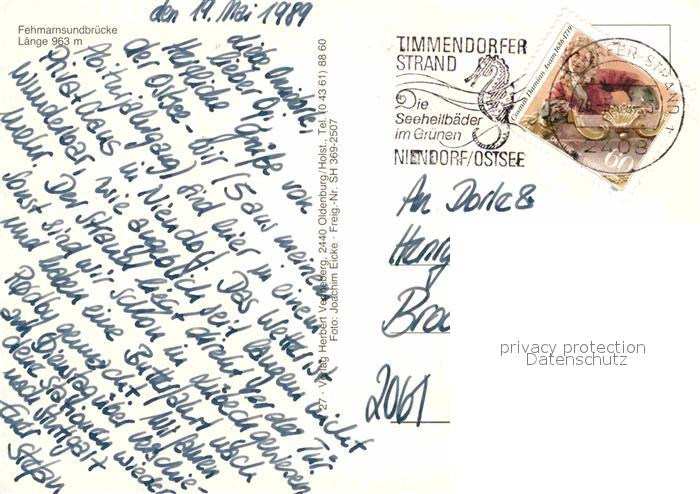 den 19. Mai 1989
Fehmarnsundbrücke
Länge 963 m
liebe
liebe
Herzliche Grüße von
der Ostsee - Wir (5 aus meinem
Abiturjahrgang) sind hier in einem
Privathaus in Niendorf. Das Wetter ist
wunderbar, wie angeblich seit langem nicht
mehr. Der Strand liegt direkt vor der Tür.
Sonst sind wir schon in Lübeck gewesen
und haben eine Butterfahrt nach
Rødby gemacht. Wir fahren
am Dienstag über verschie-
dene Stationen wieder
nach Stuttgart
Euer
Stefan
27 · Verlag Herbert 2440 Oldenburg/Holst., Tel. (0 43 61) 88 60
Foto: Joachim Eicke · Freig.-Nr. SH 369-2507
TIMMENDORFER
STRAND
Die
Seeheilbäder
im Grünen
NIENDORF/OSTSEE
Cosmas Damian Asam 1686-1739
60
2408
An Dorle &
Henry
2061
privacy protection
Datenschutz